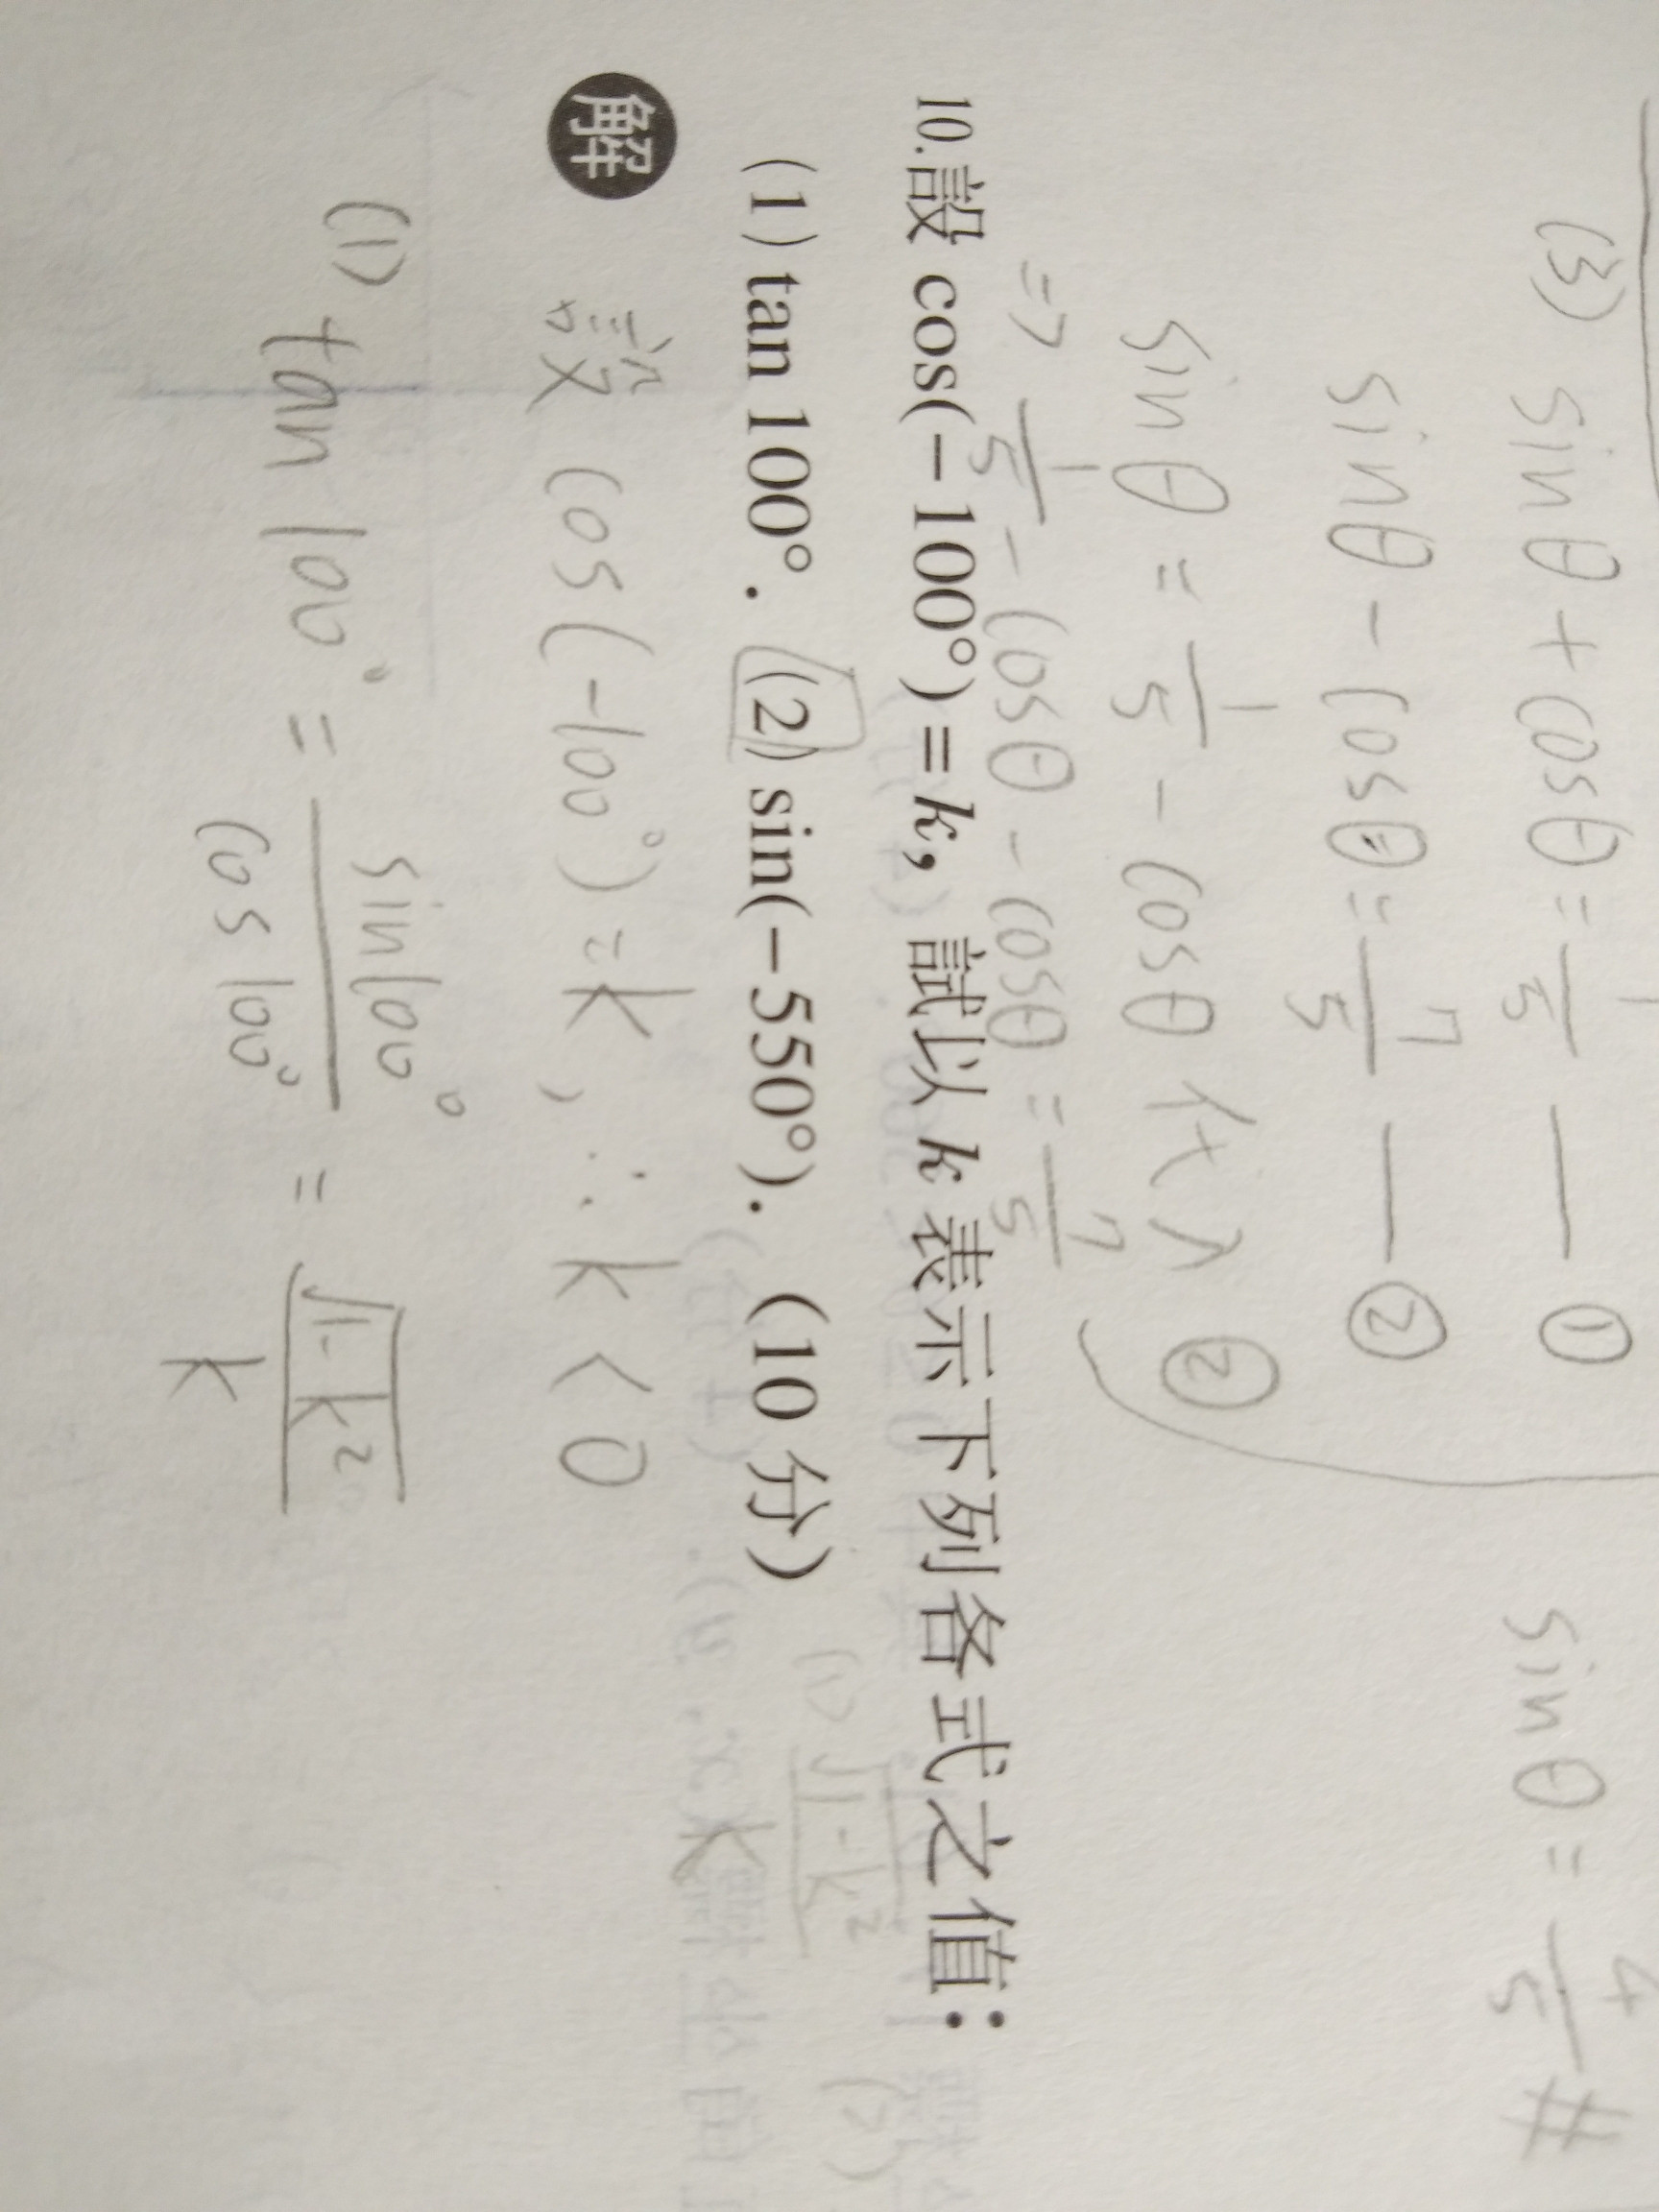 (3) sinθ + cosθ = 1/5 — ① sinθ = 4/5 #
sinθ - cosθ = 7/5 — ②
sinθ = 1/5 - cosθ 代入 ②
=> 1/5 - cosθ - cosθ = 7/5
10.設 cos(−100°)=k,試以 k 表示下列各式之值:
(1) tan 100°. (2) sin(−550°). (10 分)
(1) √1-k²
k
(2)
解 設 cos(-100°) = k , ∴ k < 0
(1) tan 100° = sin100°/cos100° = √1-k²/k